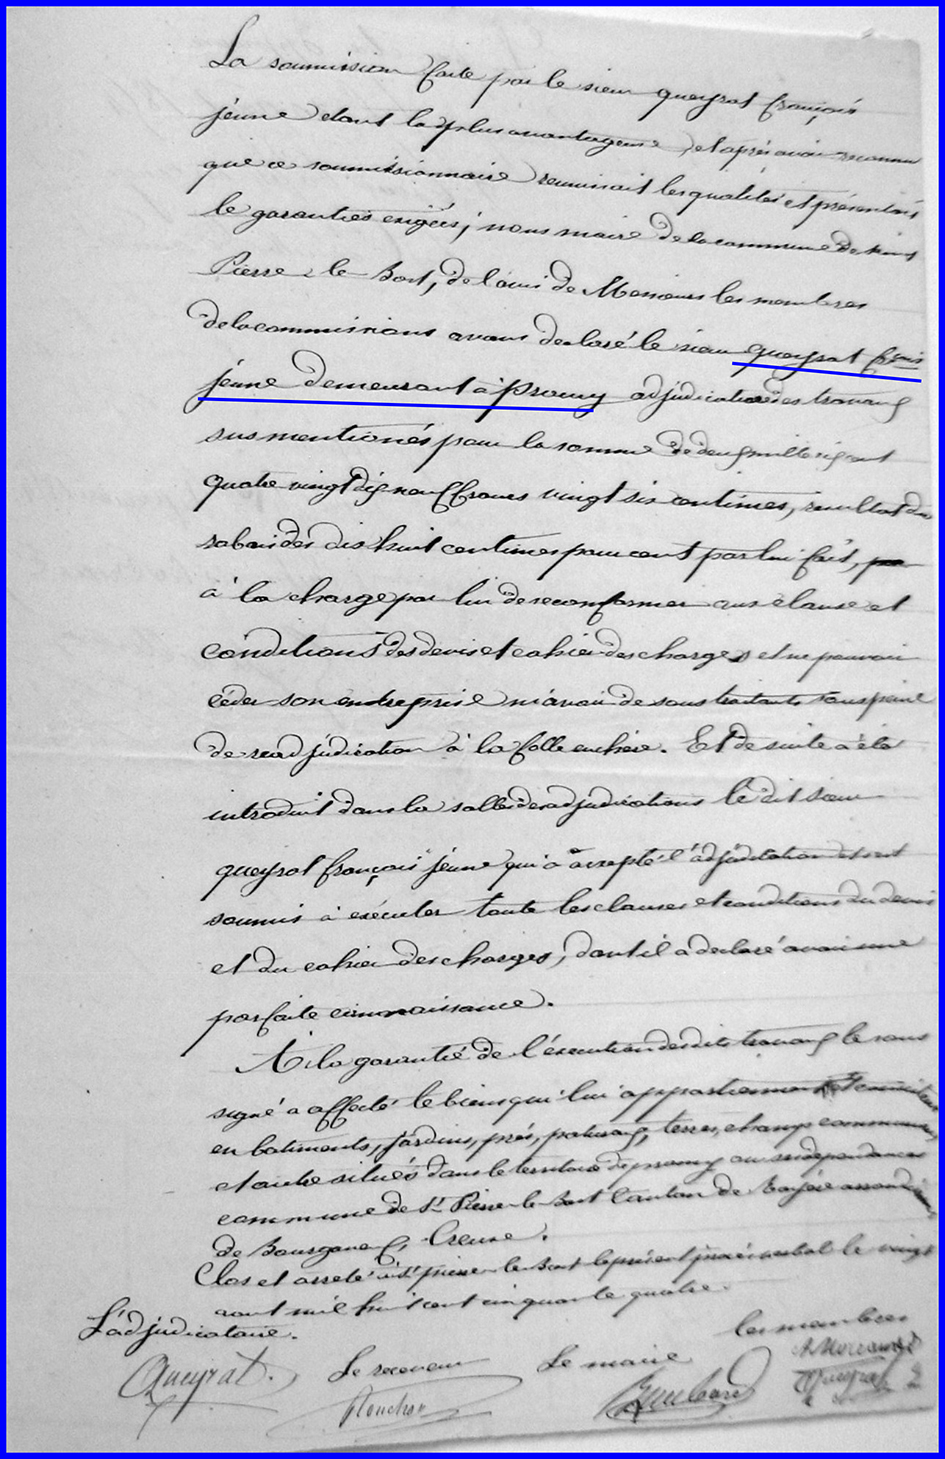 La soumission faite par le sieur queyrat françois
jeune etant la plus avantageuse, et après avoir reconnu
que ce soumissionnaire reunissait les qualités et présentait
le garanties exigées; nous maire de la commune de saint
Pierre le Bost, de l'avis de Messieurs les membres
de la commission avons declaré le sieur queyrat fçois
jeune demeurant à promy adjudicataire des travaux
sus mentionés pour la somme de deux mille
quatre vingt dix neuf francs vingt six centimes, resultat du
rabais de dix huit centimes pour cent par lui fait,
à la charge par lui de se conformer aux clause et
conditions des devis et cahier des charges et ne pouvoir
céder son entreprise n'avoir de sous traitants sous peine
de readjudication à la folle enchère. Et de suite a été
introduit dans la salle des adjudications le dit sieur
queyrat françois jeune qui a accepté l'adjudication et s'est
soumis à exécuter toute les clauses et conditions du devis
et du cahier des charges, dont il a declaré avoir une
parfaite connaissance.
A la garantie de l'éxecution desdits travaux le sous
signé a affecté le biens qui lui appartiennent et consistant
en batiments, jardins, prés, paturaux, terres, champs communs
et autre situés dans le territoire de promy ou ses dependances
commune de St Pierre le Bost Canton de Royère arrondt
de Bourganeuf, Creuse.
Clos et arreté à St pierre le Bost le présent procés verbal le vingt
aout mil huit cent cinquante quatre.
L'adjudicataire.
Le receveur
Le maire
les membres
Queyrat.
Queyrat